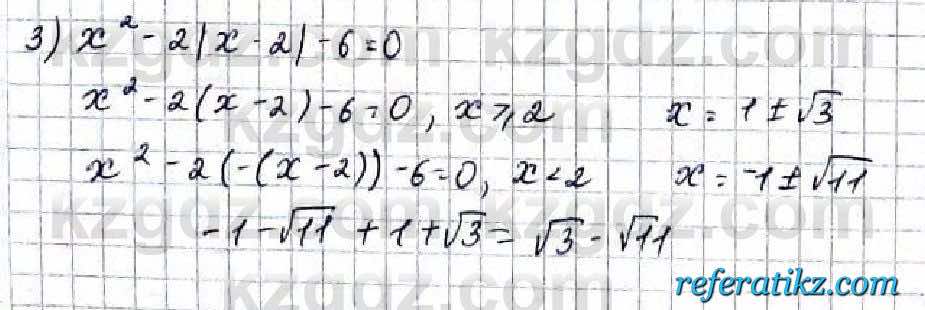 3) x² - 2|x - 2| - 6 = 0
x² - 2(x - 2) - 6 = 0, x ⩾ 2 x = 1 ± √3
x² - 2(-(x - 2)) - 6 = 0, x < 2 x = -1 ± √11
-1 - √11 + 1 + √3 = √3 - √11
kzgdz.com
referatikz.com